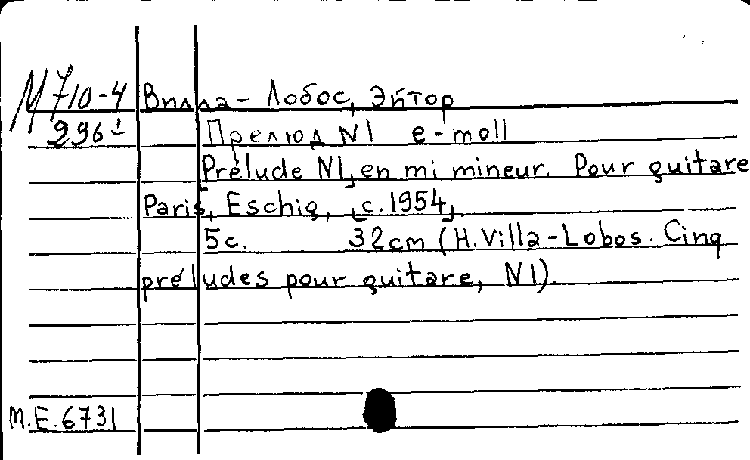 М710-4 Вилла-Лобос, Эйтор
296 Прелюд N1 e-moll
Prélude N1, en mi mineur. Pour guitare
Paris, Eschig, [c.1954]
5с. 32cm (H.Villa-Lobos. Cinq
préludes pour guitare, N1).
M.E.6731